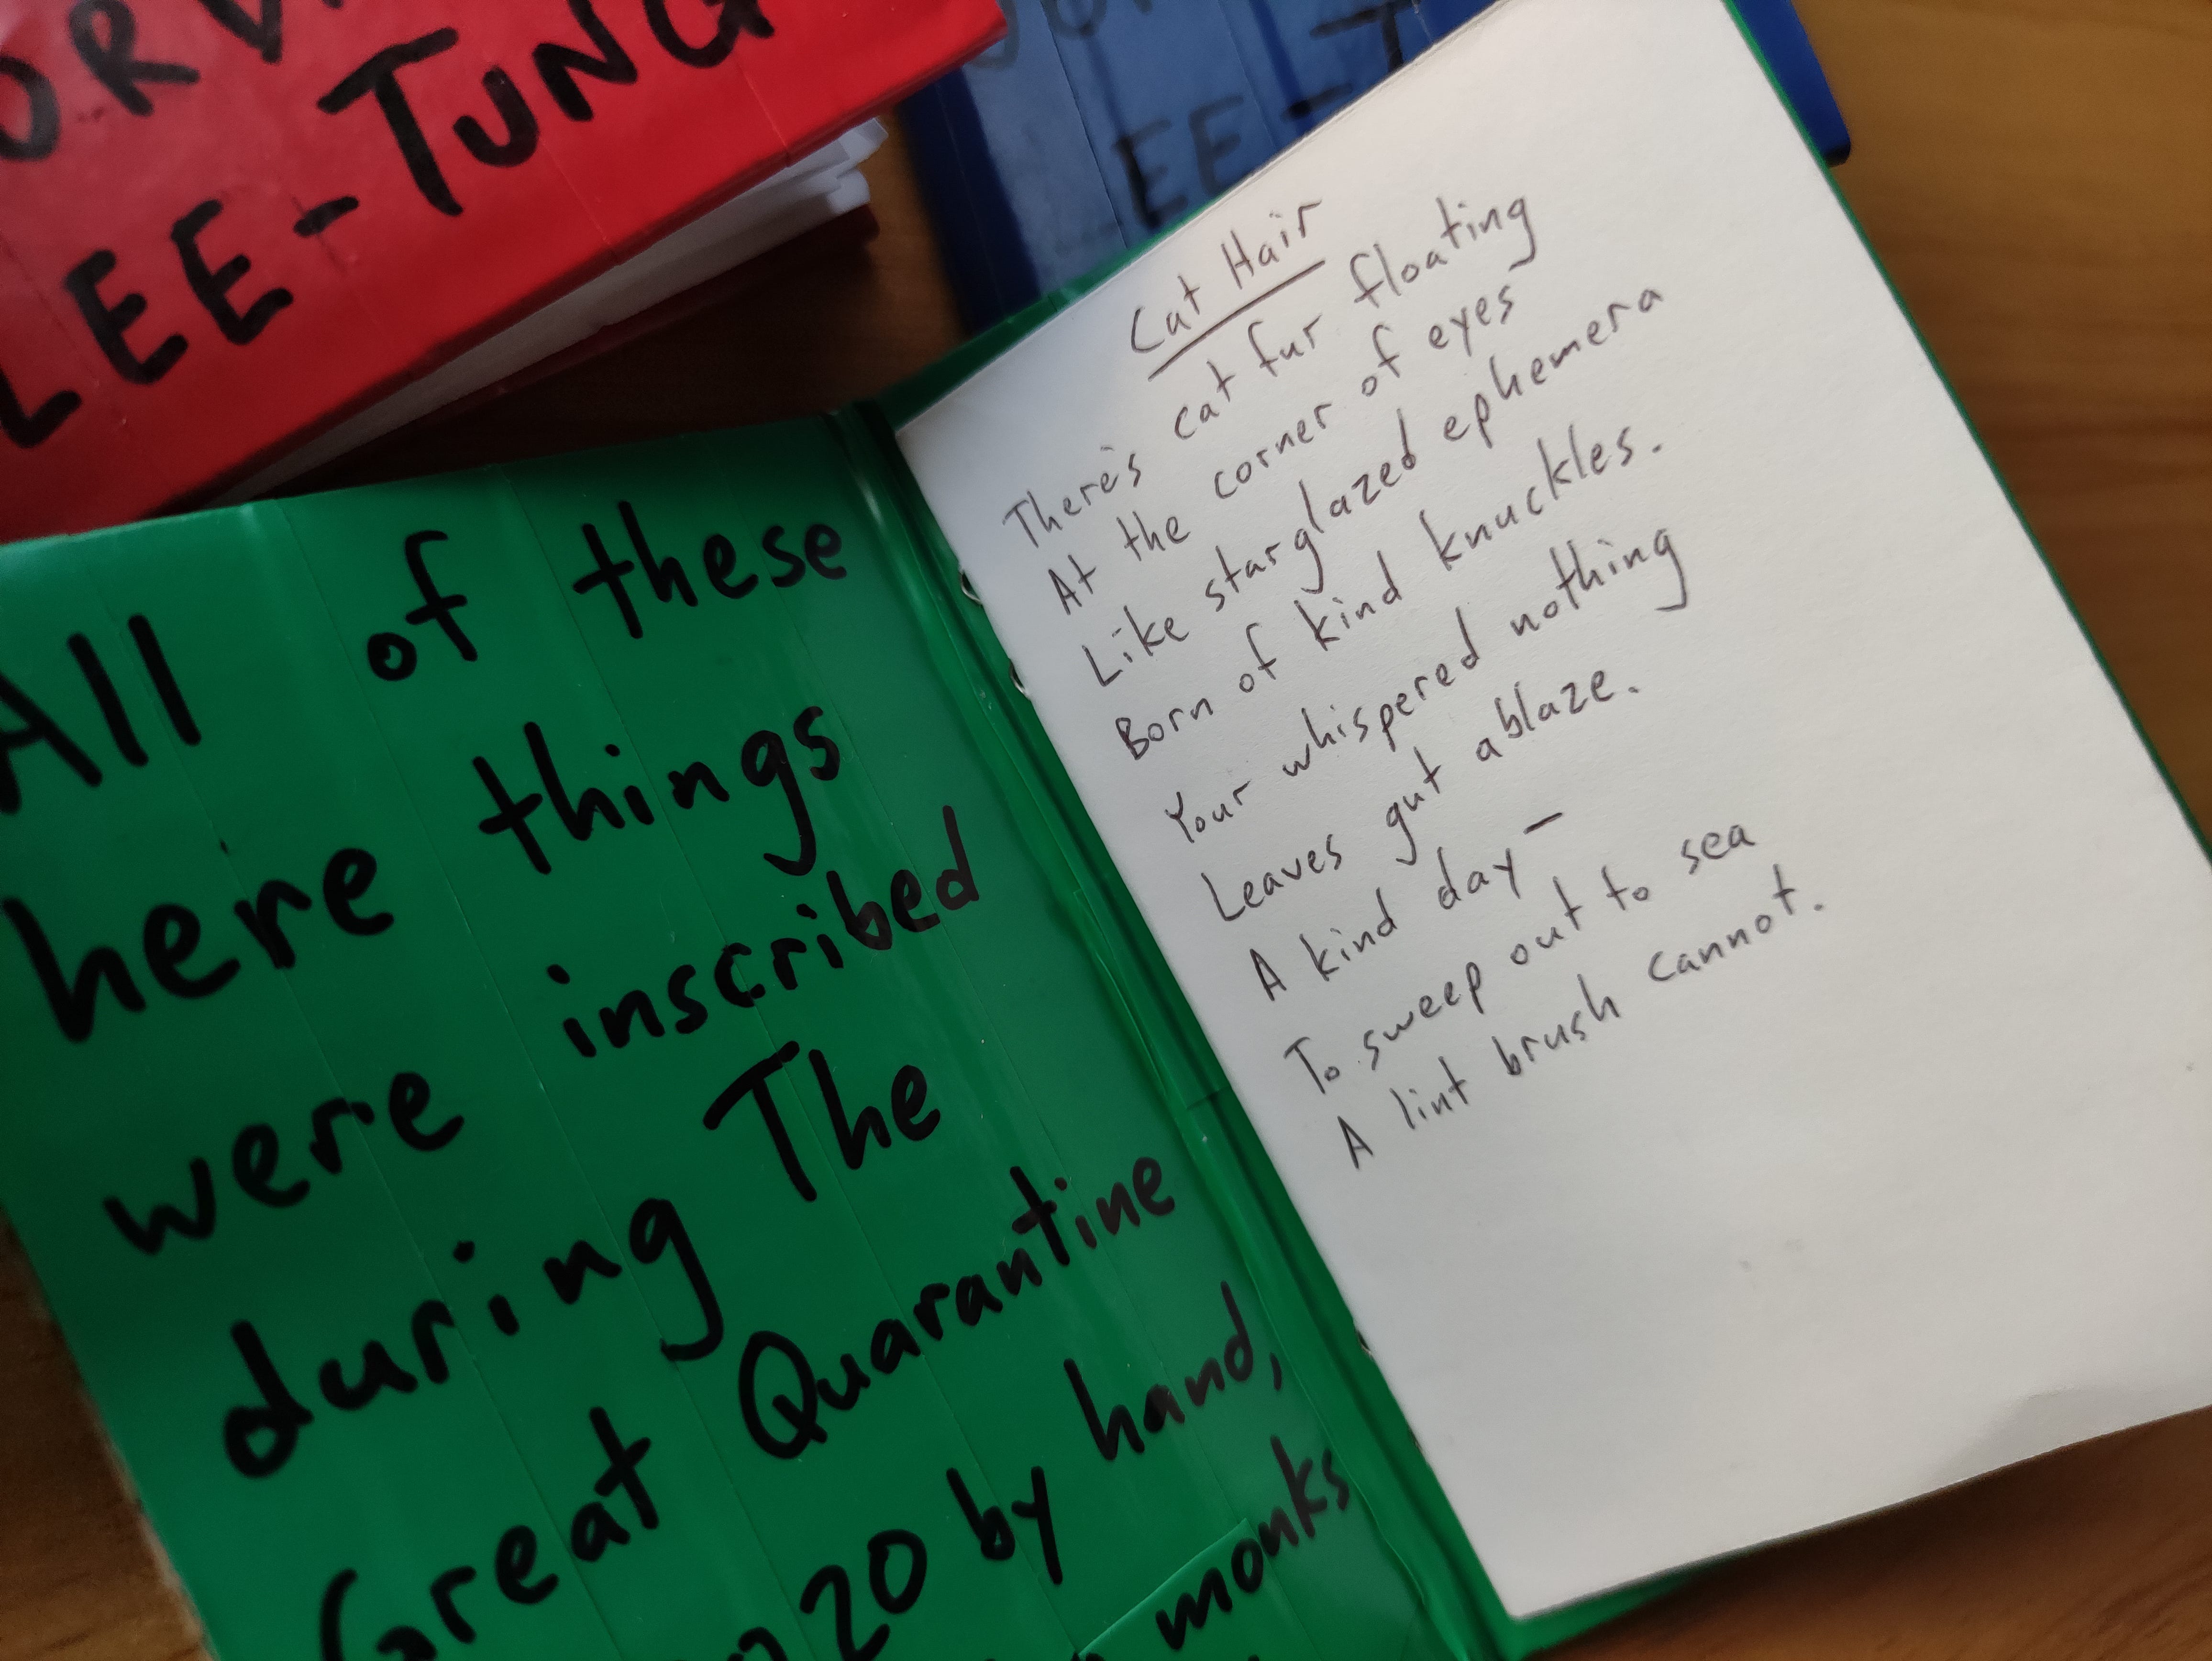 LEE-TUNG
All of these
here things
were inscribed
during The
Great Quarantine
20 by hand,
monks
Cat Hair
There's cat fur floating
At the corner of eyes
Like starglazed ephemera
Born of kind knuckles.
Your whispered nothing
Leaves gut ablaze.
A kind day –
To sweep out to sea
A lint brush cannot.